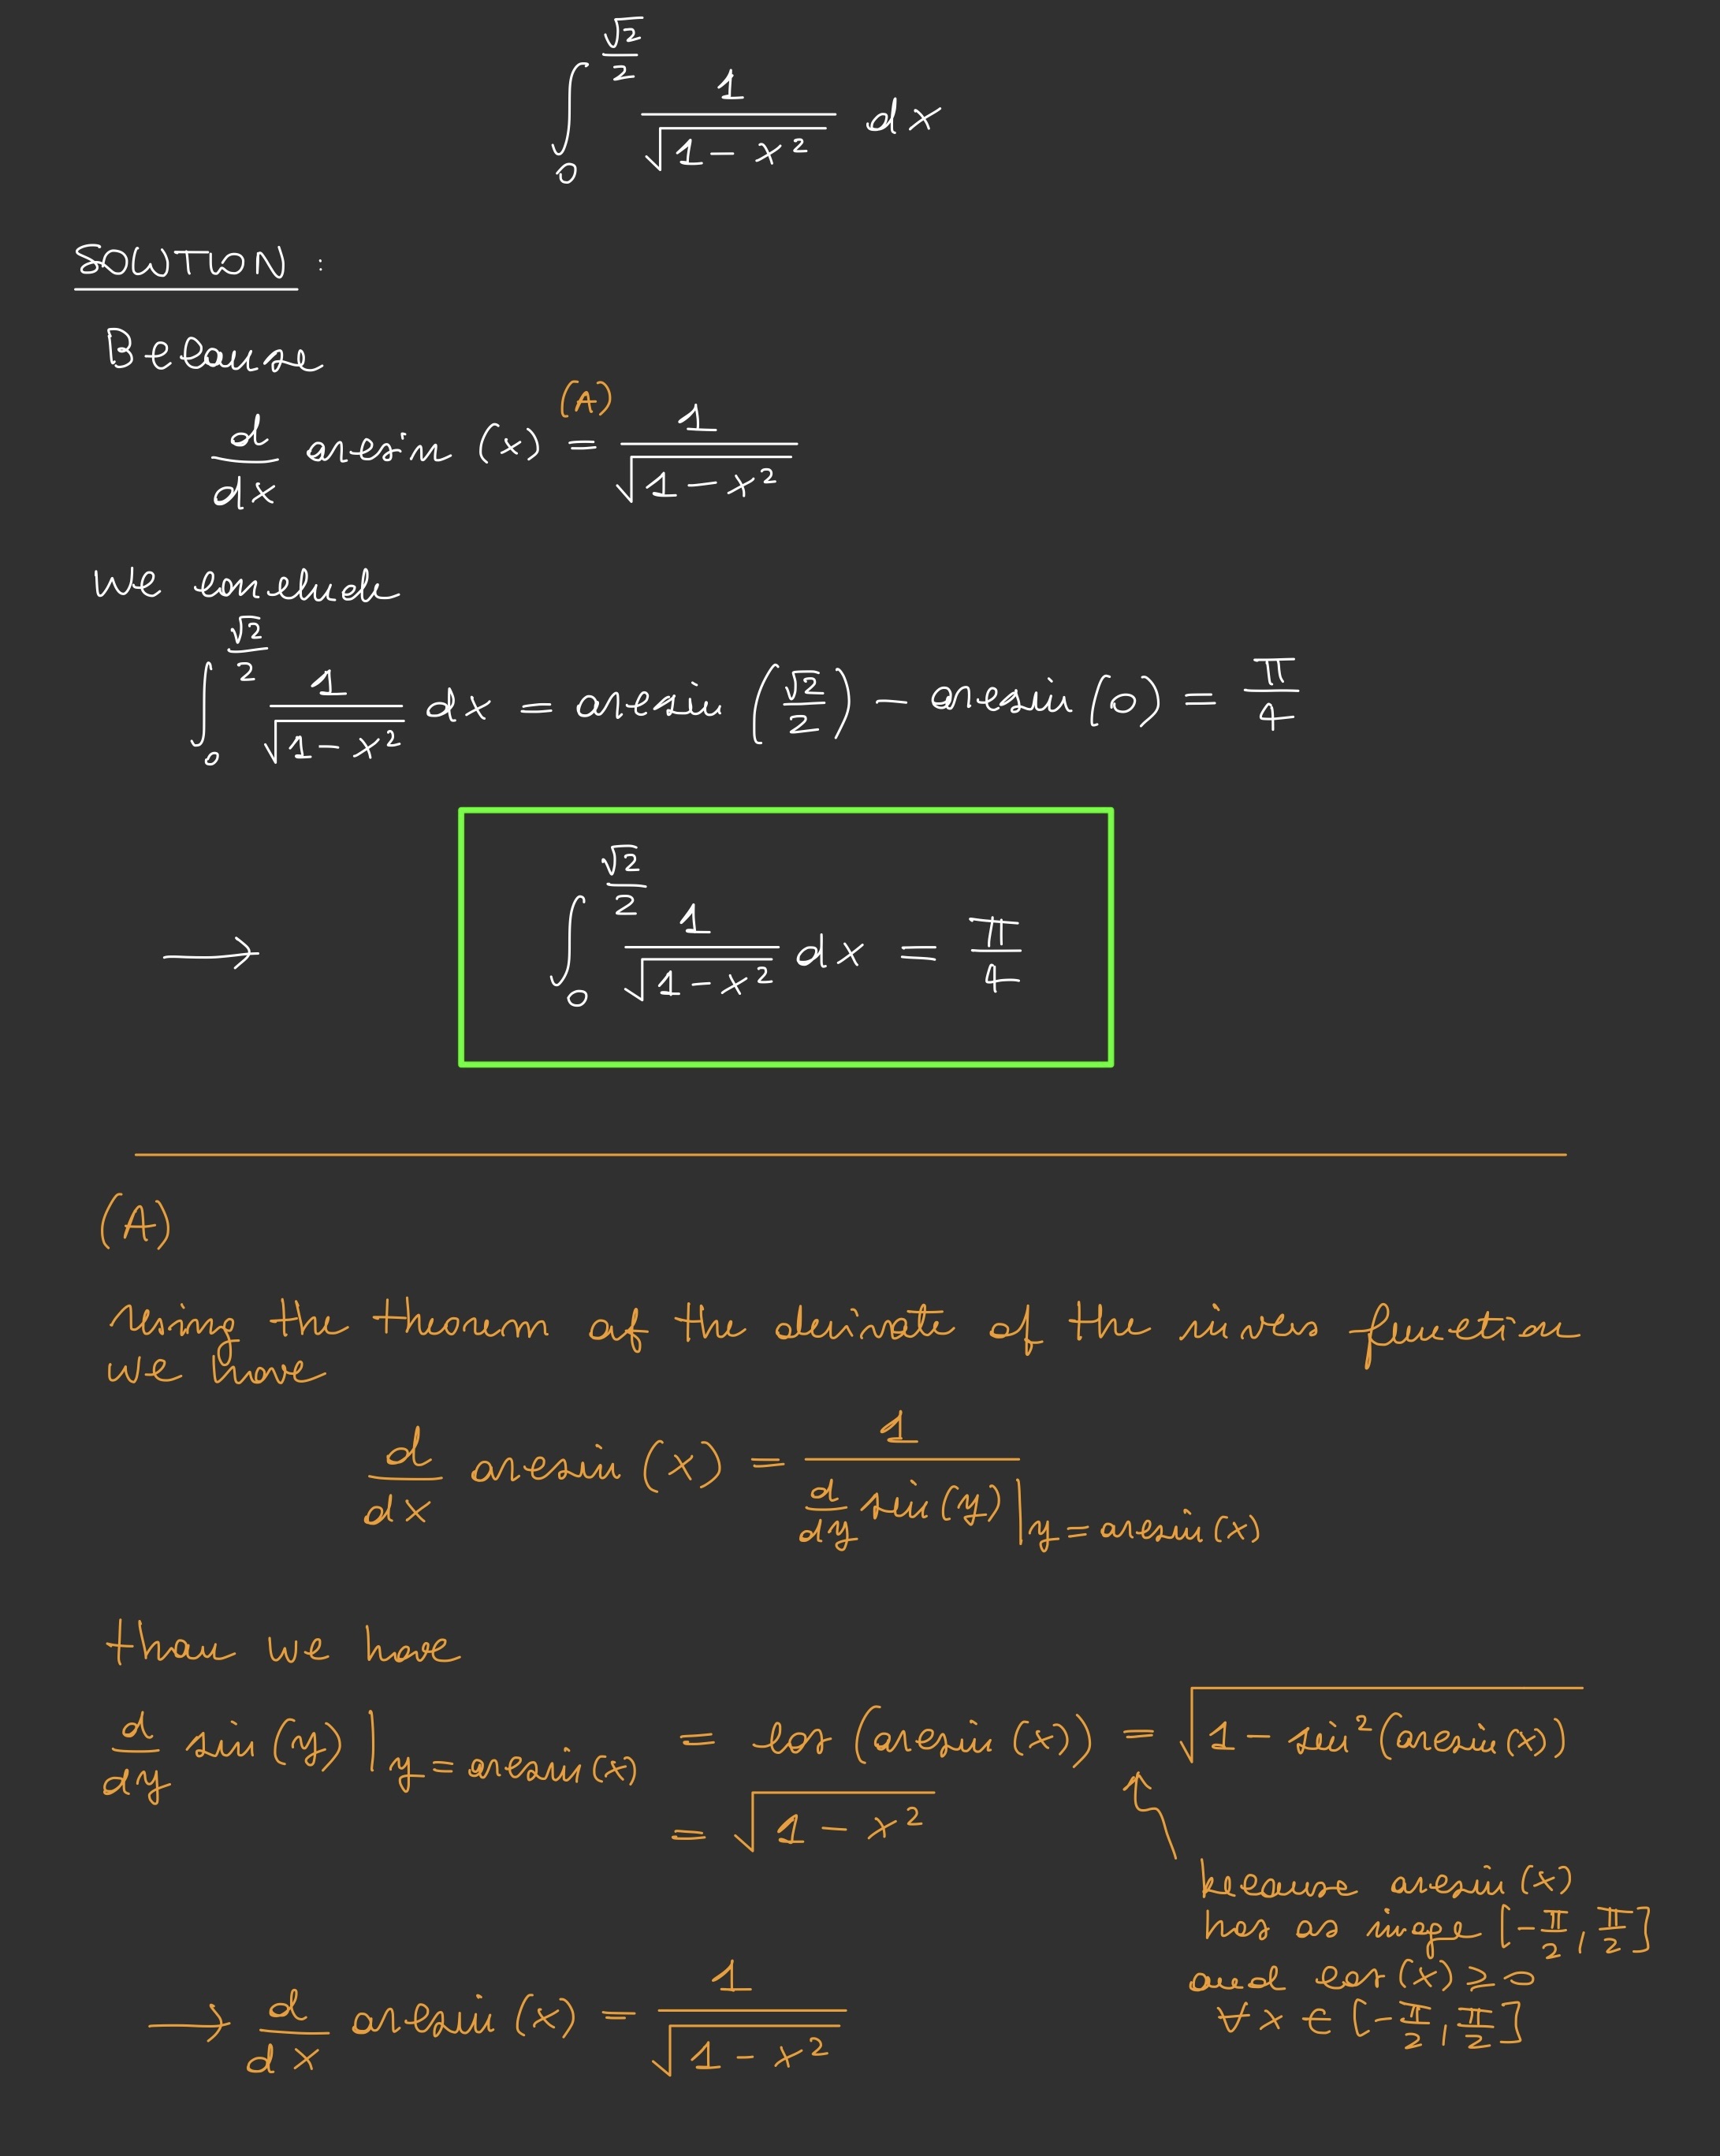 ∫_0^{√2/2} 1/√(1-x²) dx
SOLUTION :
Because
d/dx arcsin (x) =^{(A)} 1/√(1-x²)
We conclude
∫_0^{√2/2} 1/√(1-x²) dx = arcsin (√2/2) - arcsin (0) = π/4
⟶ ∫_0^{√2/2} 1/√(1-x²) dx = π/4
(A)
using the theorem of the derivate of the invers function
we have
d/dx arcsin (x) = 1/(d/dy sin(y)|_{y=arcsin(x)})
then we have
d/dy sin(y)|_{y=arcsin(x)} = cos (arcsin(x)) = √(1-sin²(arcsin(x)))
= √(1-x²)
because arcsin(x)
has as image [-π/2, π/2]
and cos(x) ≥ 0
∀ x ∈ [-π/2, π/2]
⟶ d/dx arcsin (x) = 1/√(1-x²)